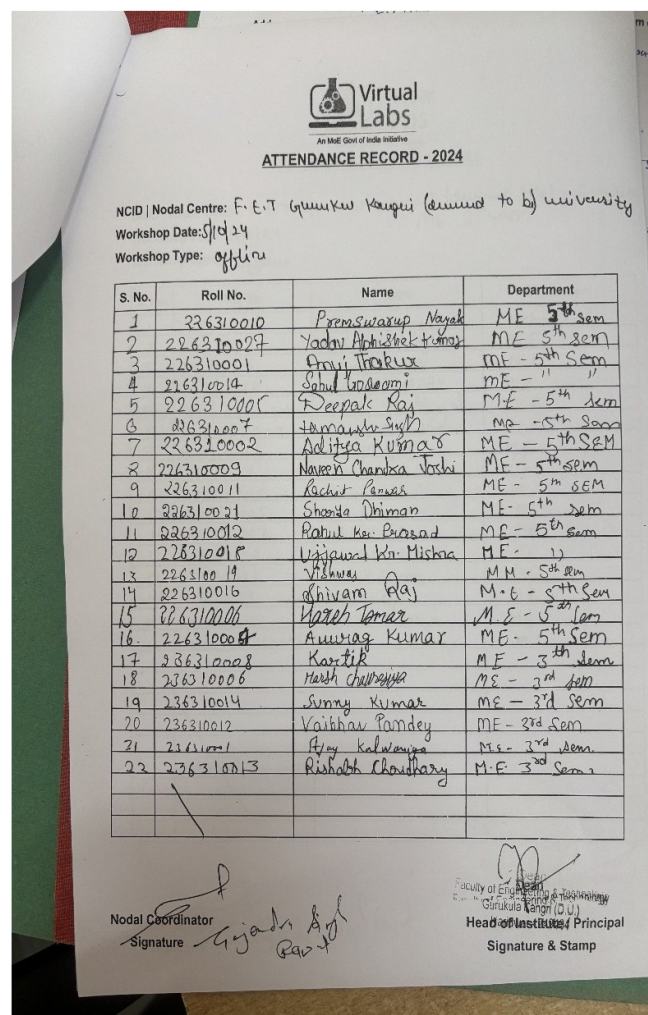 Virtual
Labs
An MoE Govt of India Initiative
ATTENDANCE RECORD - 2024
NCID | Nodal Centre: F.E.T Gurukul Kangri (deemed to be) university
Workshop Date: 5/10/24
Workshop Type: offline
S. No. Roll No. Name Department
1 226310010 Premswarup Nayak ME 5th sem
2 226310027 Yadav Abhishek Kumar ME 5th sem
3 226310001 Anuj Thakur ME - 5th Sem
4 226310014 Goswami ME - " "
5 226310005 Deepak Raj M.E - 5th sem
6 226310007 Himanshu Singh ME - 5th Sem
7 226310002 Aditya Kumar ME - 5th SEM
8 226310009 Naveen Chandra Joshi ME - 5th sem
9 226310011 Rachit Panwar ME - 5th SEM
10 226310021 Dhiman ME - 5th sem
11 226310012 Rahul Kr. Prasad ME - 5th Sem
12 226310018 Ujjawal Kr. Mishra ME - "
13 226310019 Vishwas 5th sem
14 226310016 Shivam Raj M.E - 5th Sem
15 226310006 Tomar M.E - 5th Sem
16. 226310004 Anurag Kumar ME - 5th Sem
17 236310008 Kartik ME - 3th sem
18 236310006 Harsh Chaurasiya ME - 3rd sem
19 236310014 Sunny Kumar ME - 3rd Sem
20 236310012 Vaibhav Pandey ME - 3rd Sem
21 236310001 Ajay M.E - 3rd sem.
22 236310013 Rishabh Choudhary M.E. 3rd Sem.
Dean
Faculty of Engineering & Technology
Gurukula Kangri (D.U.)
Nodal Coordinator Head of Institute / Principal
Signature Gajendra Singh Signature & Stamp
Rawat